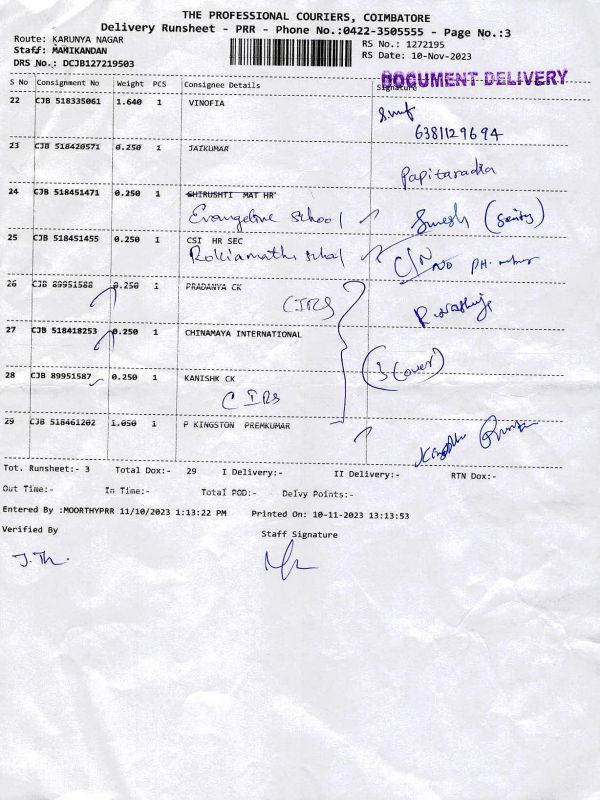 THE PROFESSIONAL COURIERS, COIMBATORE
Delivery Runsheet - PRR - Phone No.:0422-3505555 - Page No.:3
Route: KARUNYA NAGAR
Staff: MANIKANDAN
DRS No.: DCJB127219503
RS No.: 1272195
RS Date: 10-Nov-2023
DOCUMENT DELIVERY
S No Consignment No Weight PCS Consignee Details Signature
22 CJB 518335061 1.640 1 VINOFIA
6381129694
23 CJB 518420571 0.250 1 JAIKUMAR
24 CJB 518451471 0.250 1 SHIRUSHTI MAT HR
Evangeline school
Suresh
25 CJB 518451455 0.250 1 CSI HR SEC
C/N No PH. number
26 CJB 89951588 0.250 1 PRADANYA CK
CIRS
27 CJB 518418253 0.250 1 CHINAMAYA INTERNATIONAL
3 (over)
28 CJB 89951587 0.250 1 KANISHK CK
CIRS
29 CJB 518461202 1.050 1 P KINGSTON PREMKUMAR
Tot. Runsheet:- 3 Total Dox:- 29 I Delivery:- II Delivery:- RTN Dox:-
Out Time:- In Time:- Total POD:- Delvy Points:-
Entered By :MOORTHYPRR 11/10/2023 1:13:22 PM Printed On: 10-11-2023 13:13:53
Verified By Staff Signature